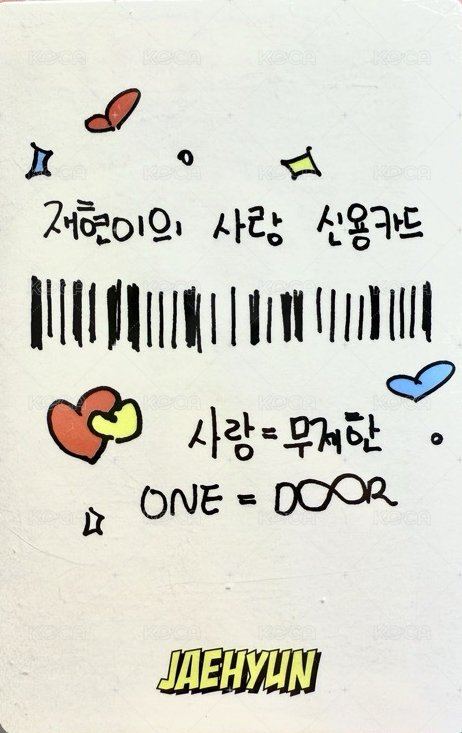 재현이의 사랑 신용카드
사랑=무제한
ONE = DOOR
JAEHYUN